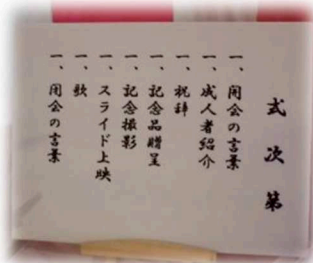 式次第
一、開会の言葉
一、成人者紹介
一、祝辞
一、記念品贈呈
一、記念撮影
一、スライド上映
一、歌
一、閉会の言葉